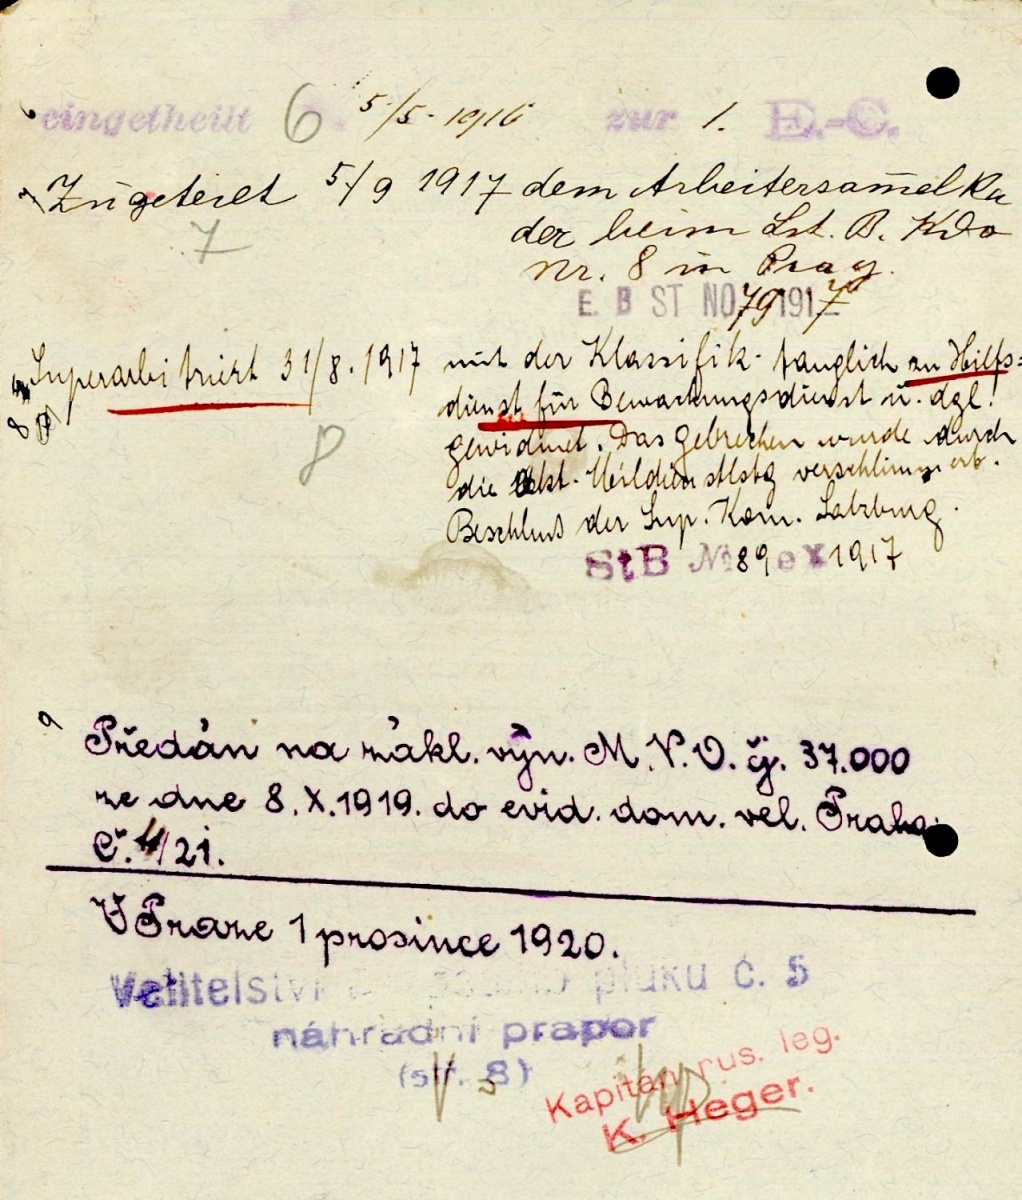 6 eingetheilt 6 5/5. 1916 zur 1. E.-C.
7 Zugeteilt 5/9 1917 dem Arbeitersam̄elka
7 der beim Lst. B. Kdo
Nr. 8 in Prag.
E. B ST NO 79 1917
8 Superarbitriert 31/8. 1917 mit der Klassifik. tauglich zu Hilfs=
dienst für Bewachungsdienst u. dgl.
8 gewidmet. Das Gebrechen wurde durch
die verschlimmert.
Beschluß der Sup. Kom. Salzburg.
StB № 89 ex 1917
9 Předán na zákl. výn. M. N. O. čj. 37.000
ze dne 8. X. 1919. do evid. dom. vel. Praha
Č. 4/21.
V Praze 1 prosince 1920.
Velitelství pluku č. 5
náhradní prapor
(str. 8)
Kapitán rus. leg.
K. Heger.